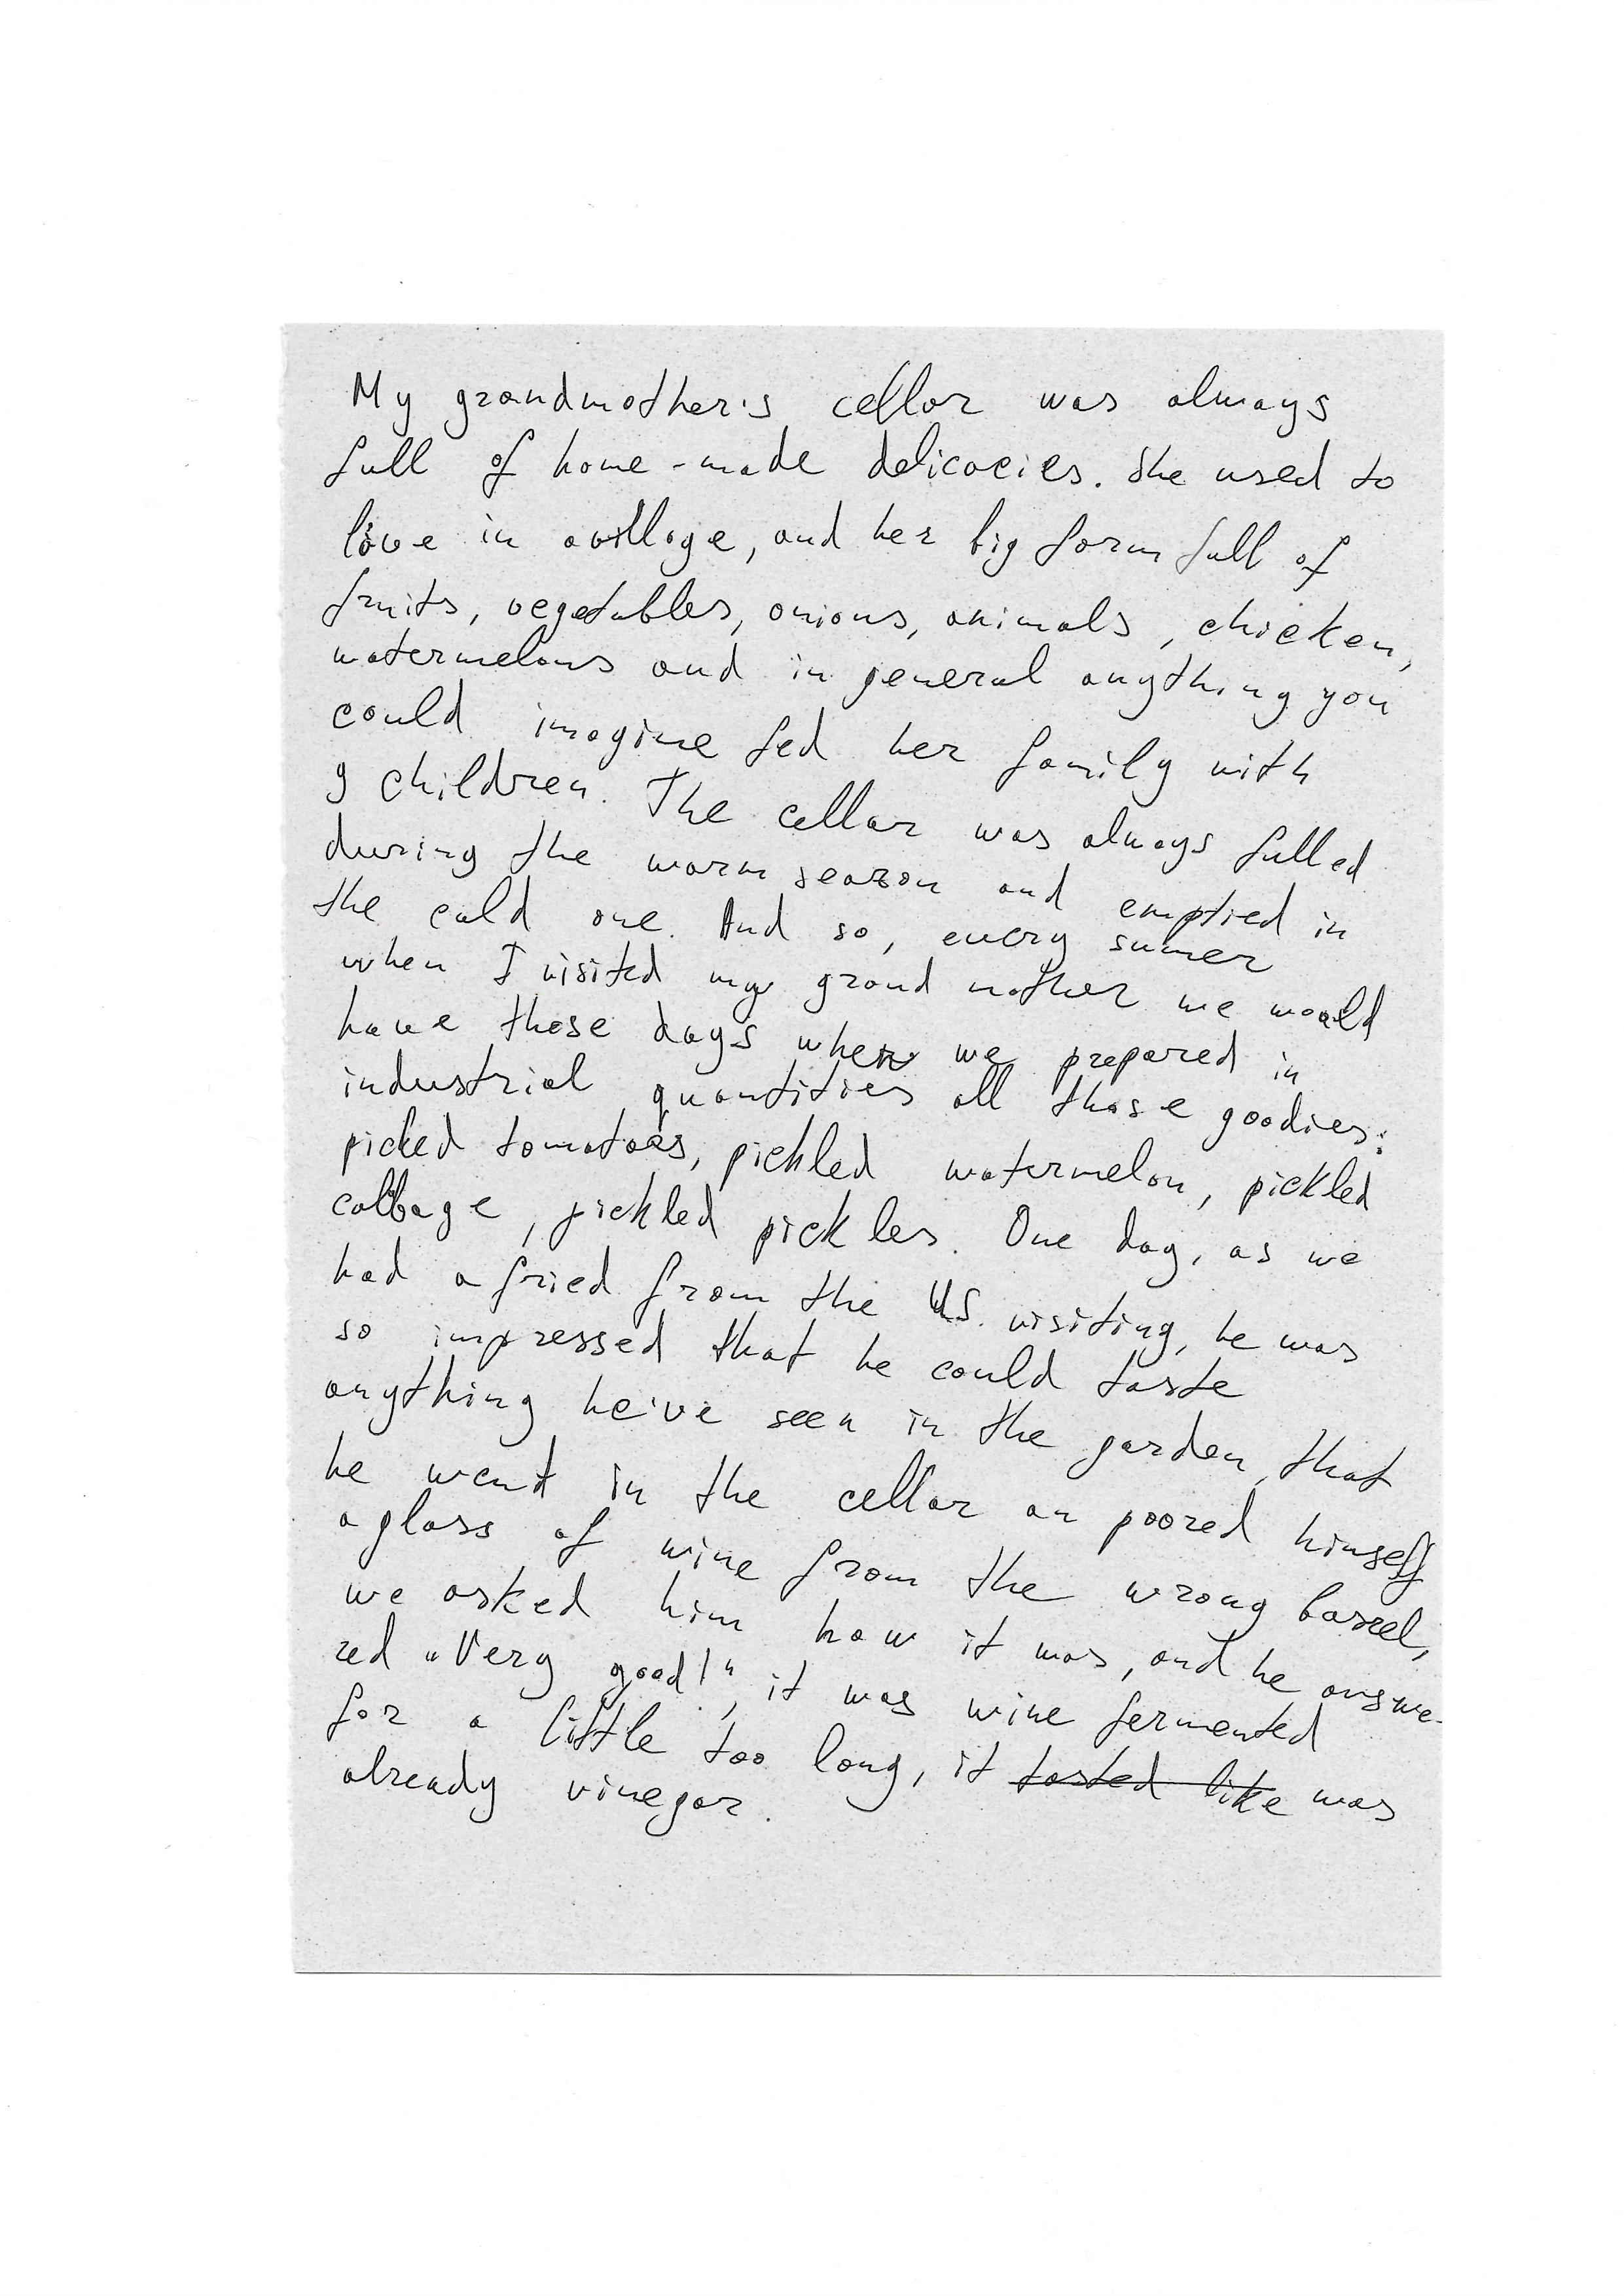 My grandmother's cellar was always
full of home-made delicacies. She used to
live in a village, and her big farm full of
fruits, vegetables, onions, animals, chicken,
watermelons and in general anything you
could imagine fed her family with
9 children. The cellar was always fulled
during the warm season and emptied in
the cold one. And so, every sumer
when I visited my grand mother we would
have these days when we prepared in
industrial quantities all those goodies:
picked tomatoes, pickled watermelon, pickled
cabbage, pickled pickles. One day, as we
had a fried from the US. visiting, he was
so impressed that he could taste
anything he've seen in the garden, that
he went in the cellar an poored himself
a glass of wine from the wrong barrel,
we asked him how it was, and he answe-
red "Very good!", it was wine fermented
for a little too long, it tasted like was
already vinegar.